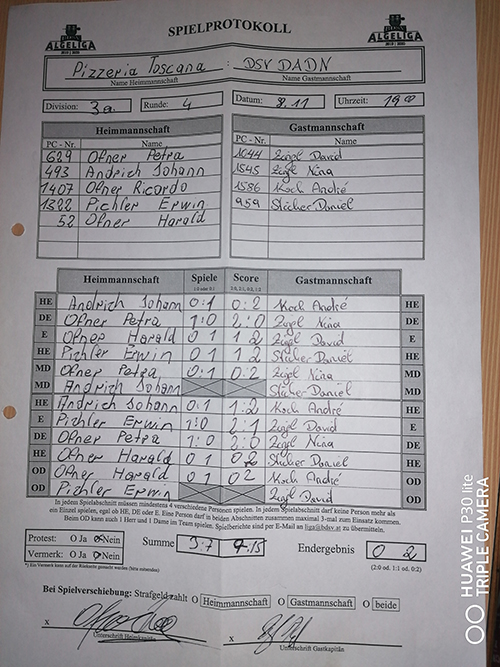 ALGELIGA SPIELPROTOKOLL ALGELIGA
Pizzeria Toscana : DSV DADN
Name Heimmannschaft Name Gastmannschaft
Division: 3a. Runde: 4 Datum: 8.11 Uhrzeit: 19 00
Heimmannschaft Gastmannschaft
PC - Nr. Name PC - Nr. Name
629 Ofner Petra 1044 Zügl David
493 Andrich Johann 1545 Zügl Nina
1407 Ofner Ricordo 1586 Koch André
1322 Pichler Erwin 959 Stücher Daniel
52 Ofner Harald
Heimmannschaft Spiele Score Gastmannschaft
1:0 oder 0:1 2:0, 2:1, 0:2, 1:2
HE Andrich Johann 0:1 0:2 Koch André HE
DE Ofner Petra 1:0 2:0 Zügl Nina DE
E Ofner Harald 0 1 1 2 Zügl David E
HE Pichler Erwin 0 1 1 2 Stücher Daniel HE
MD Ofner Petra 0:1 0:2 Zügl Nina MD
MD Andrich Johann Stücher Daniel MD
HE Andrich Johann 0:1 1:2 Koch André HE
E Pichler Erwin 1:0 2:1 Zügl David E
DE Ofner Petra 1:0 2:0 Zügl Nina DE
HE Ofner Harald 0 1 0 2 Stücher Daniel HE
OD Ofner Harald 0 1 0 2 Koch André OD
OD Pichler Erwin Zügl David OD
In jedem Spielabschnitt müssen mindestens 4 verschiedene Personen spielen. In jedem Spielabschnitt darf keine Person mehr als
ein Einzel spielen, egal ob HE, DE oder E. Eine Person darf in beiden Abschnitten zusammen maximal 3-mal zum Einsatz kommen.
Beim OD kann auch 1 Herr und 1 Dame im Team spielen. Spielberichte sind per E-Mail an liga@bdsv.at zu übermitteln.
Protest: O Ja O Nein Summe 3:7 9:15 Endergebnis 0 2
Vermerk: O Ja O Nein (2:0 od. 1:1 od. 0:2)
*) Ein Vermerk kann auf der Rückseite gemacht werden (bitte ankreuzen)
Bei Spielverschiebung: Strafgeld zahlt O Heimmannschaft O Gastmannschaft O beide
x x
Unterschrift Heimkapitän Unterschrift Gastkapitän
HUAWEI P30 lite
TRIPLE CAMERA